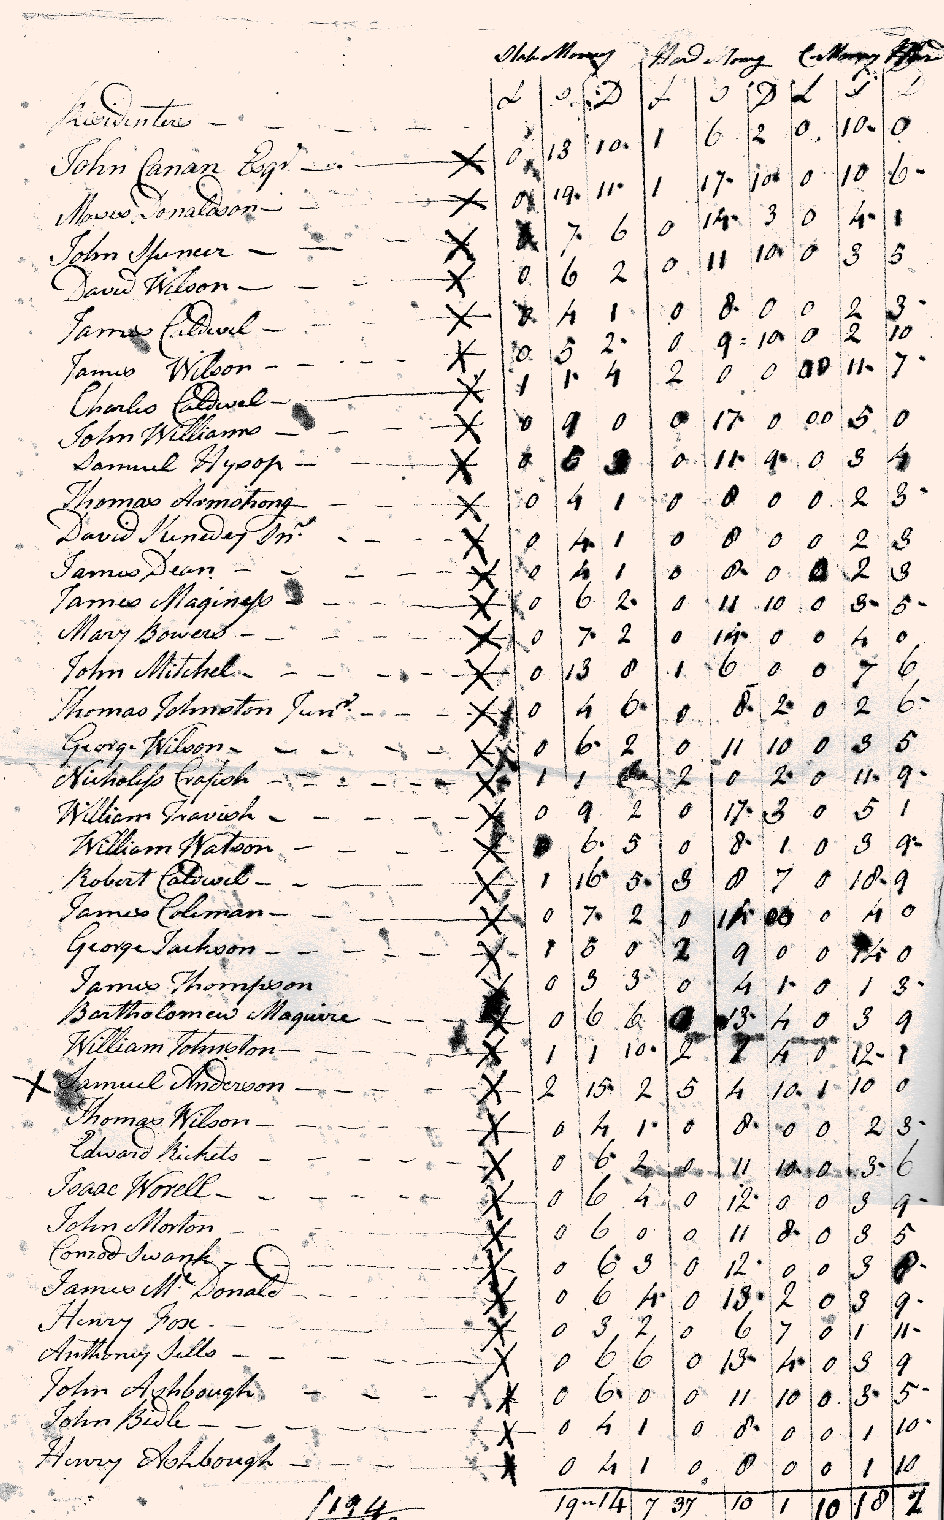 State Money Hard Money C. Money Hard
L S D L S D L S D
Residenters
John Canan Esqr X 0 13 10 1 6 2 0 10 0
Moses Donaldson X 0 19 11 1 17 10 0 10 6
John Spencer X 7 6 0 14 3 0 4 1
David Wilson X 0 6 2 0 11 10 0 3 5
James Caldwel X 0 4 1 0 8 0 0 2 3
James Wilson X 0 5 2 0 9 10 0 2 10
Charles Caldwel X 1 1 4 2 0 0 00 11 7
John Williams X 0 9 0 0 17 0 00 5 0
Samuel Hysop X 0 5 3 0 11 9 0 3 4
Thomas Armstrong X 0 4 1 0 8 0 0 2 3
David Kenedey Snr X 0 4 1 0 8 0 0 2 3
James Dean X 0 4 1 0 8 0 0 2 3
James Maginess X 0 6 2 0 11 10 0 3 5
Mary Bowers X 0 7 2 0 14 0 0 4 0
John Mitchel X 0 13 8 1 6 0 0 7 6
Thomas Johnston Junr X 0 4 6 0 8 2 0 2 6
George Wilson X 0 6 2 0 11 10 0 3 5
Nicholess Crapsh X 1 1 2 0 2 0 11 9
William Travish X 0 9 2 0 17 3 0 5 1
William Watson X 6 5 0 8 1 0 3 9
Robert Caldwel X 1 16 5 3 8 7 0 18 9
James Coleman X 0 7 2 0 14 00 0 4 0
George Jackson X 1 5 0 2 9 0 0 14 0
James Thompson X 0 3 3 0 4 1 0 1 3
Bartholomew Maguire X 0 6 6 0 13 4 0 3 9
William Johnston X 1 1 10 2 1 4 0 12 1
X Samuel Anderson X 2 15 2 5 4 10 1 10 0
Thomas Wilson X 0 4 1 0 8 0 0 2 3
Edward Rickets X 0 6 2 0 11 10 0 3 6
Isaac Worell X 0 6 4 0 12 0 0 3 9
John Morton X 0 6 0 0 11 8 0 3 5
Conrod Swank X 0 6 3 0 12 0 0 3 8
James Mc Donald X 0 6 4 0 13 2 0 3 9
Henry Fox X 0 3 2 0 6 7 0 1 11
Anthoney Sills X 0 6 6 0 13 4 0 3 9
John Ashbough X 0 6 0 0 11 10 0 3 5
John Bidle X 0 4 1 0 8 0 0 1 10
Henry Ashbough X 0 4 1 0 8 0 0 1 10
19 14 7 37 10 1 10 18 2